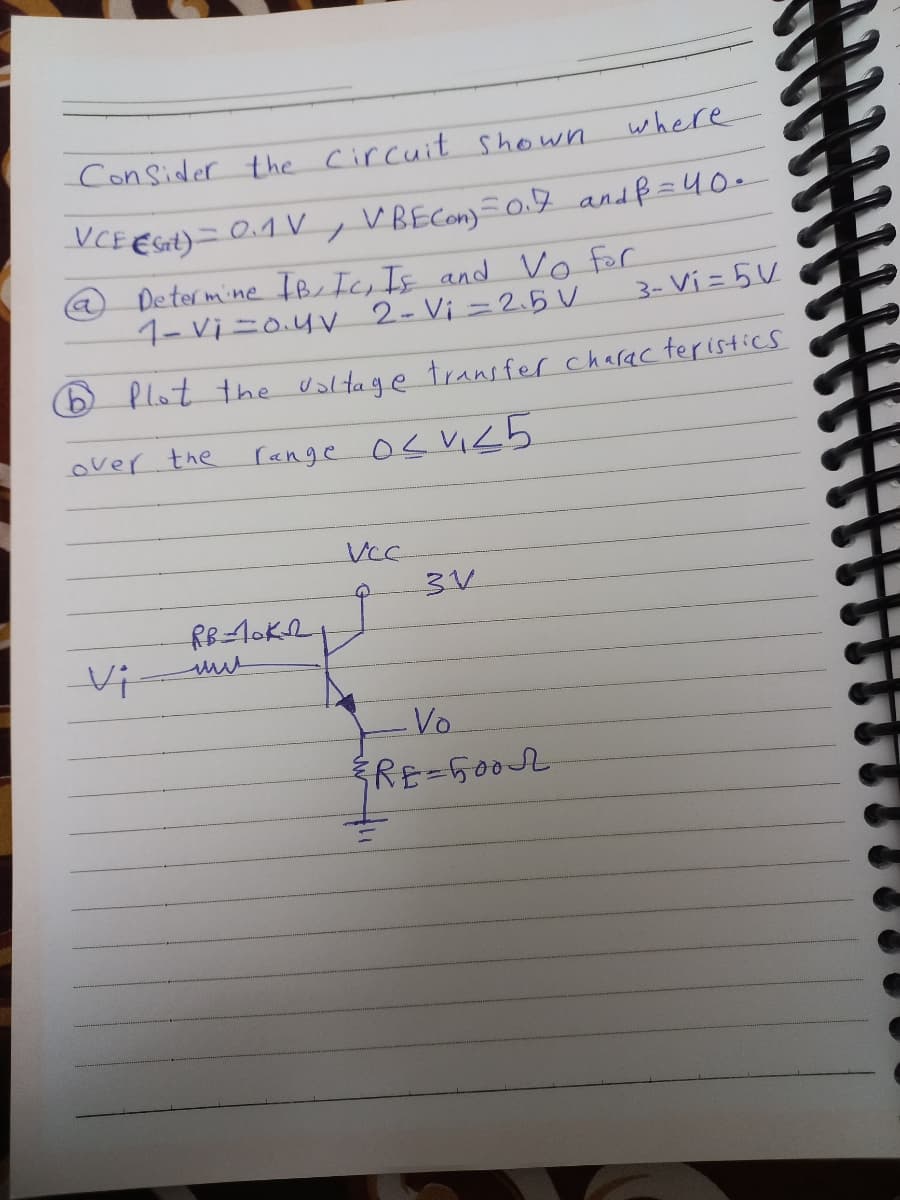 Consider the Circuit Shown where
VCE(Sat) = 0.1 V , VBE(on) = 0.7 and β = 40.
ⓐ Determine IB, IC, IE and Vo for
1- Vi = 0.4V 2- Vi = 2.5 V 3- Vi = 5V
ⓑ Plot the voltage transfer characteristics
over the range 0 ≤ Vi ≤ 5
Vcc
3V
RB=10KΩ
Vi
Vo
RE=500Ω